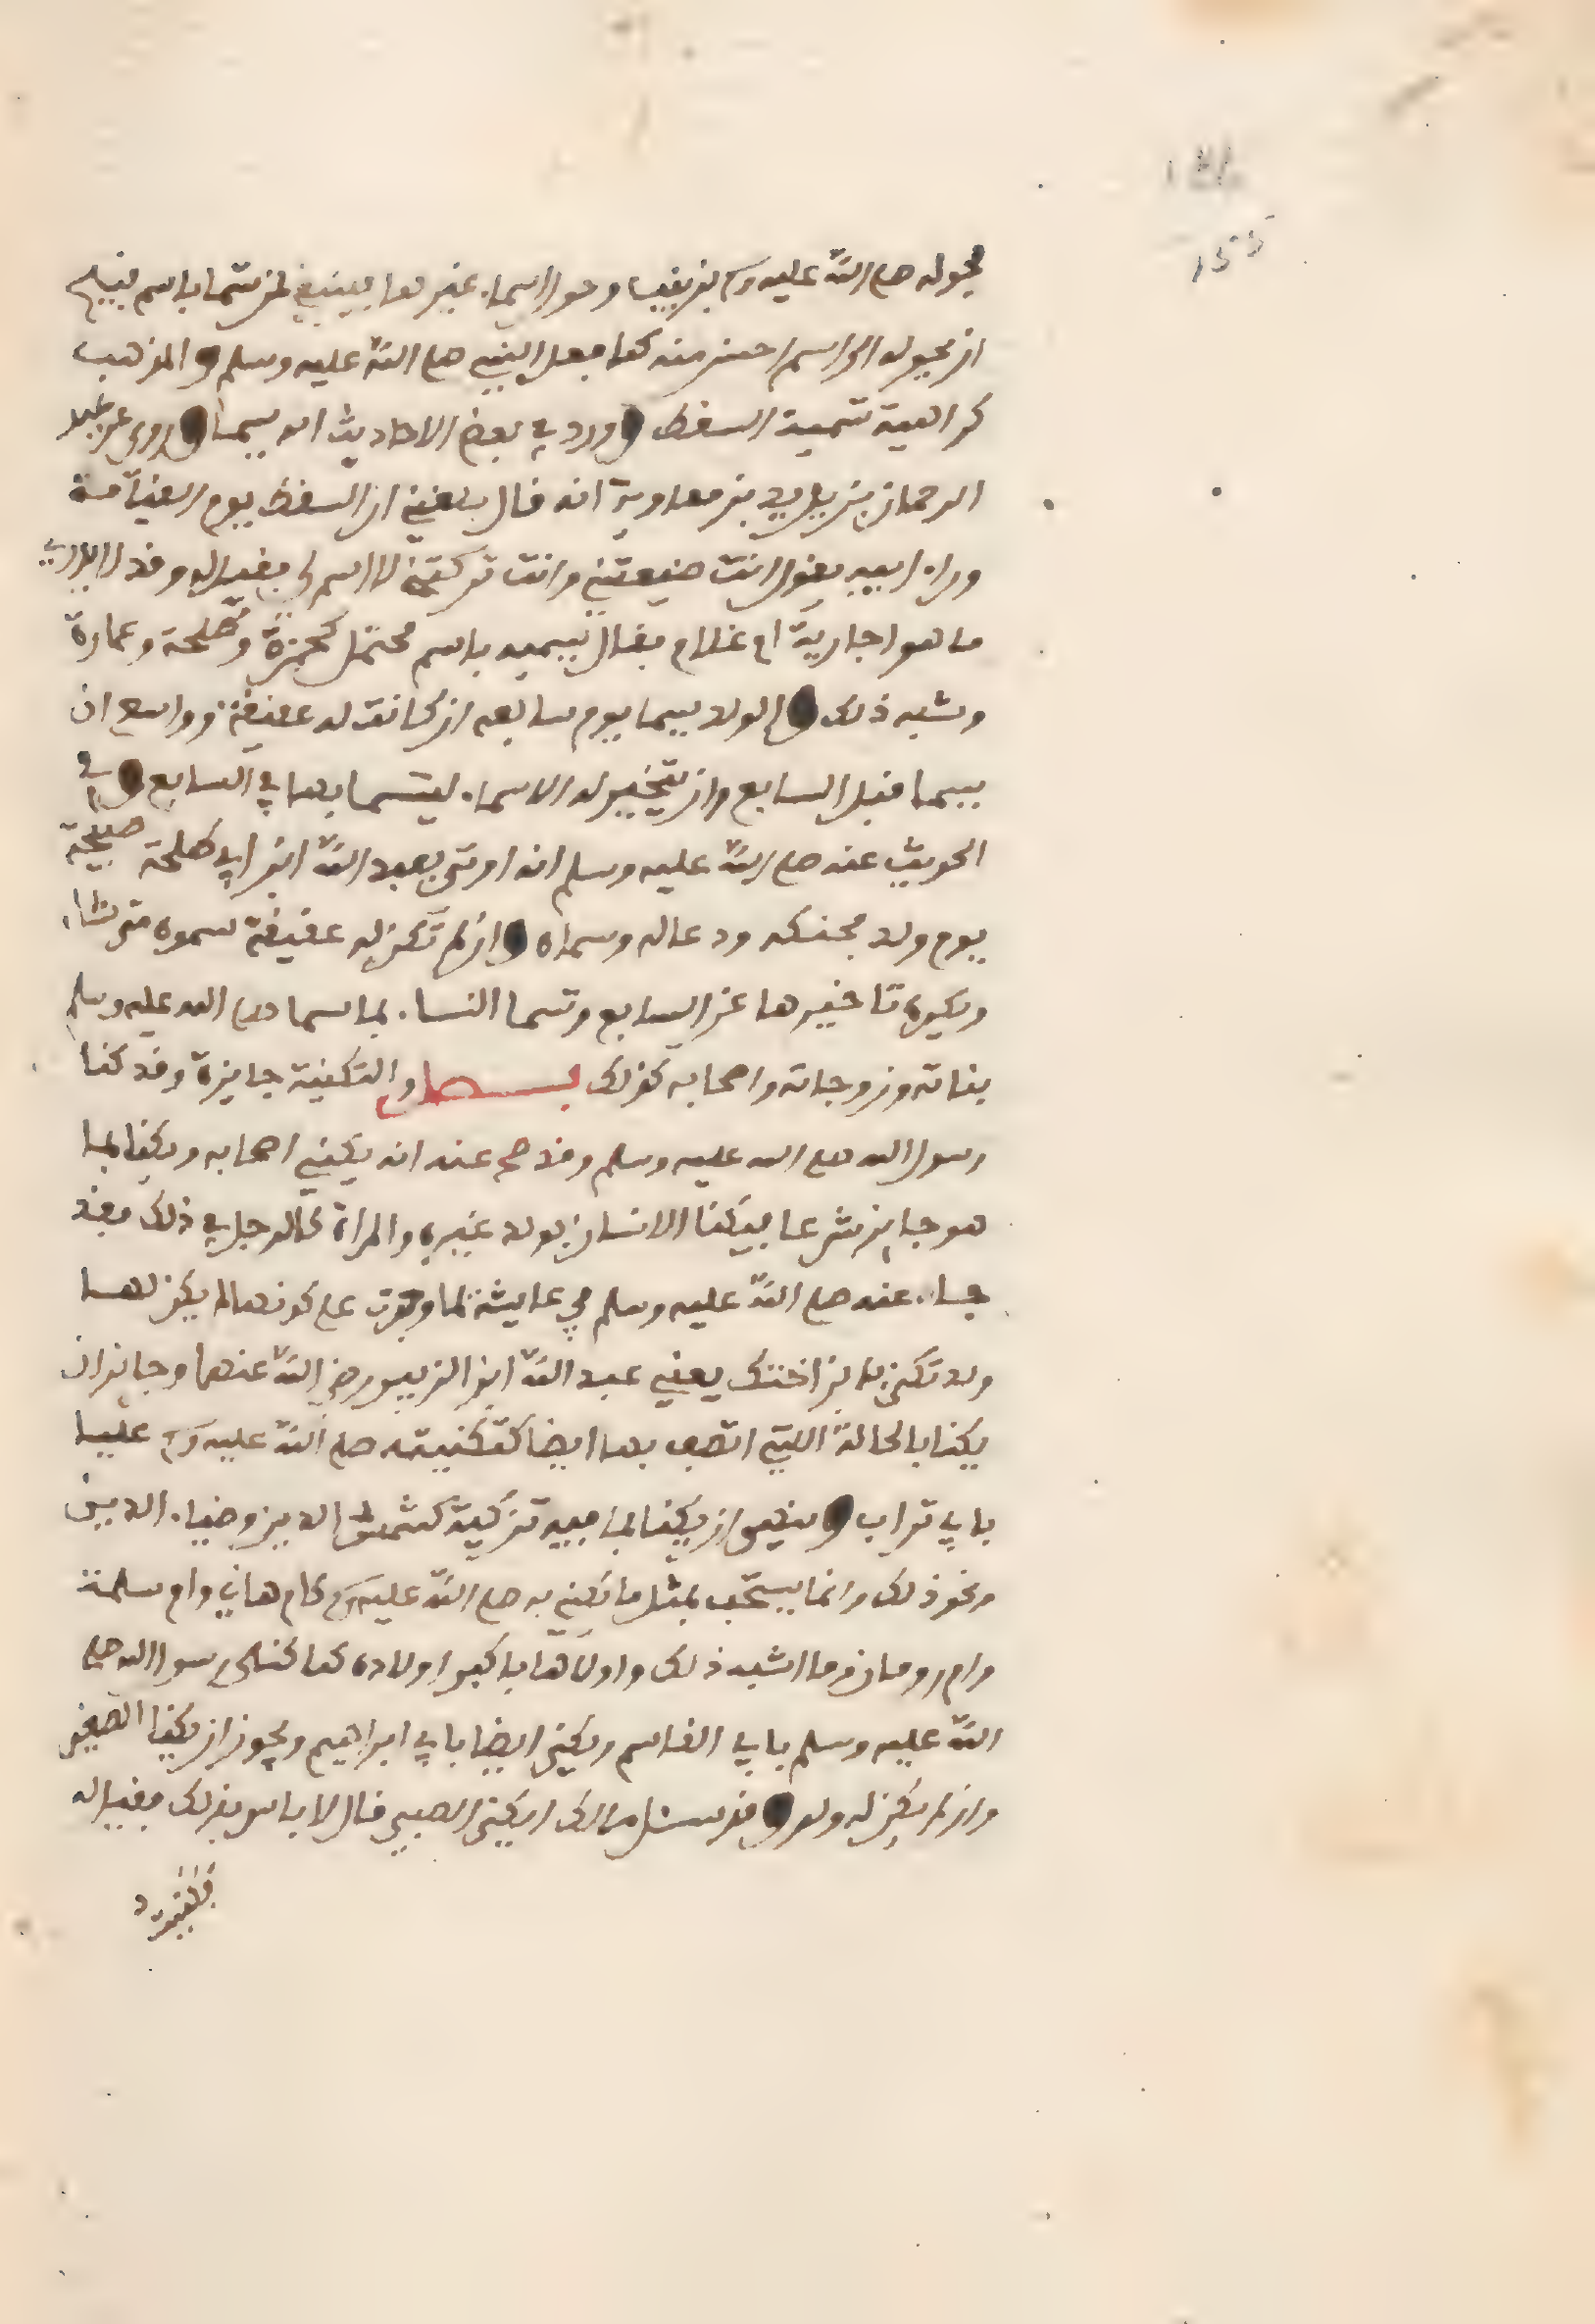 155
فحوله صلى الله عليه وسلم بزينب وحول اسماء غيرها فينبغي لمن تسما باسم قبيح
ان يحوله الى اسم احسن منه كما فعل النبي صلى الله عليه وسلم والمذهب
كراهية تسمية السقط وورد في بعض الاحاديث انه يسما وروي عن عبد
الرحمان بن يزيد بن معاوية انه قال بلغني ان السقط يوم القيامة
وراء ابيه يقول انت ضيعتني وانت تركتني لا اسم لي فقيل له وقد لا يدري
ما هو اجارية ام غلام فقال يسميه باسم محتمل كحمزة وطلحة وعمارة
وشبه ذلك والولد يسما يوم سابعه ان كانت له عقيقة وواسع ان
يسما قبل السابع وان يتخير له الاسماء ليتسما بها في السابع وفي
الحديث عنه صلى الله عليه وسلم انه اوتي بعبد الله ابن ابي طلحة صبيحة
يوم ولد فحنكه ودعا له وسماه وان لم تكن له عقيقة سموه متى شاء
ويكره تاخيرها عن السابع وتسما النساء بما سما صلى الله عليه وسلم
بناته وزوجاته واصحابه كذلك فصل والتكنية جايزة وقد كنا
رسول الله صلى الله عليه وسلم وقد صح عنه انه يكني اصحابه ويكنا بما
هو جايز شرعا فيكنا الانسان بولد غيره والمراة كالرجل في ذلك فقد
جاء عنه صلى الله عليه وسلم في عايشة لما وجدت على كونها لم يكن لها
ولد تكني بابن اختك يعني عبد الله ابن الزبير رضي الله عنهما وجايز ان
يكنا بالحالة اللتي اتصف بها ايضا كتكنيته صلى الله عليه وسلم عليا
بابي تراب وينهى ان يكنا بما فيه تزكية كشمس الدين وضياء الدين
ونحو ذلك وانما يستحب بمثل ما كني به صلى الله عليه وسلم كام هاني وام سلمة
وام رومان وما اشبه ذلك واولاها باكبر اولاده كما كني رسول الله صلى
الله عليه وسلم بابي القاسم ويكنى ايضا بابي ابراهيم ويجوز ان يكنا الصغير
وان لم يكن له ولد وقد سئل مالك ايكنى الصبي قال لا باس بذلك فقيل له